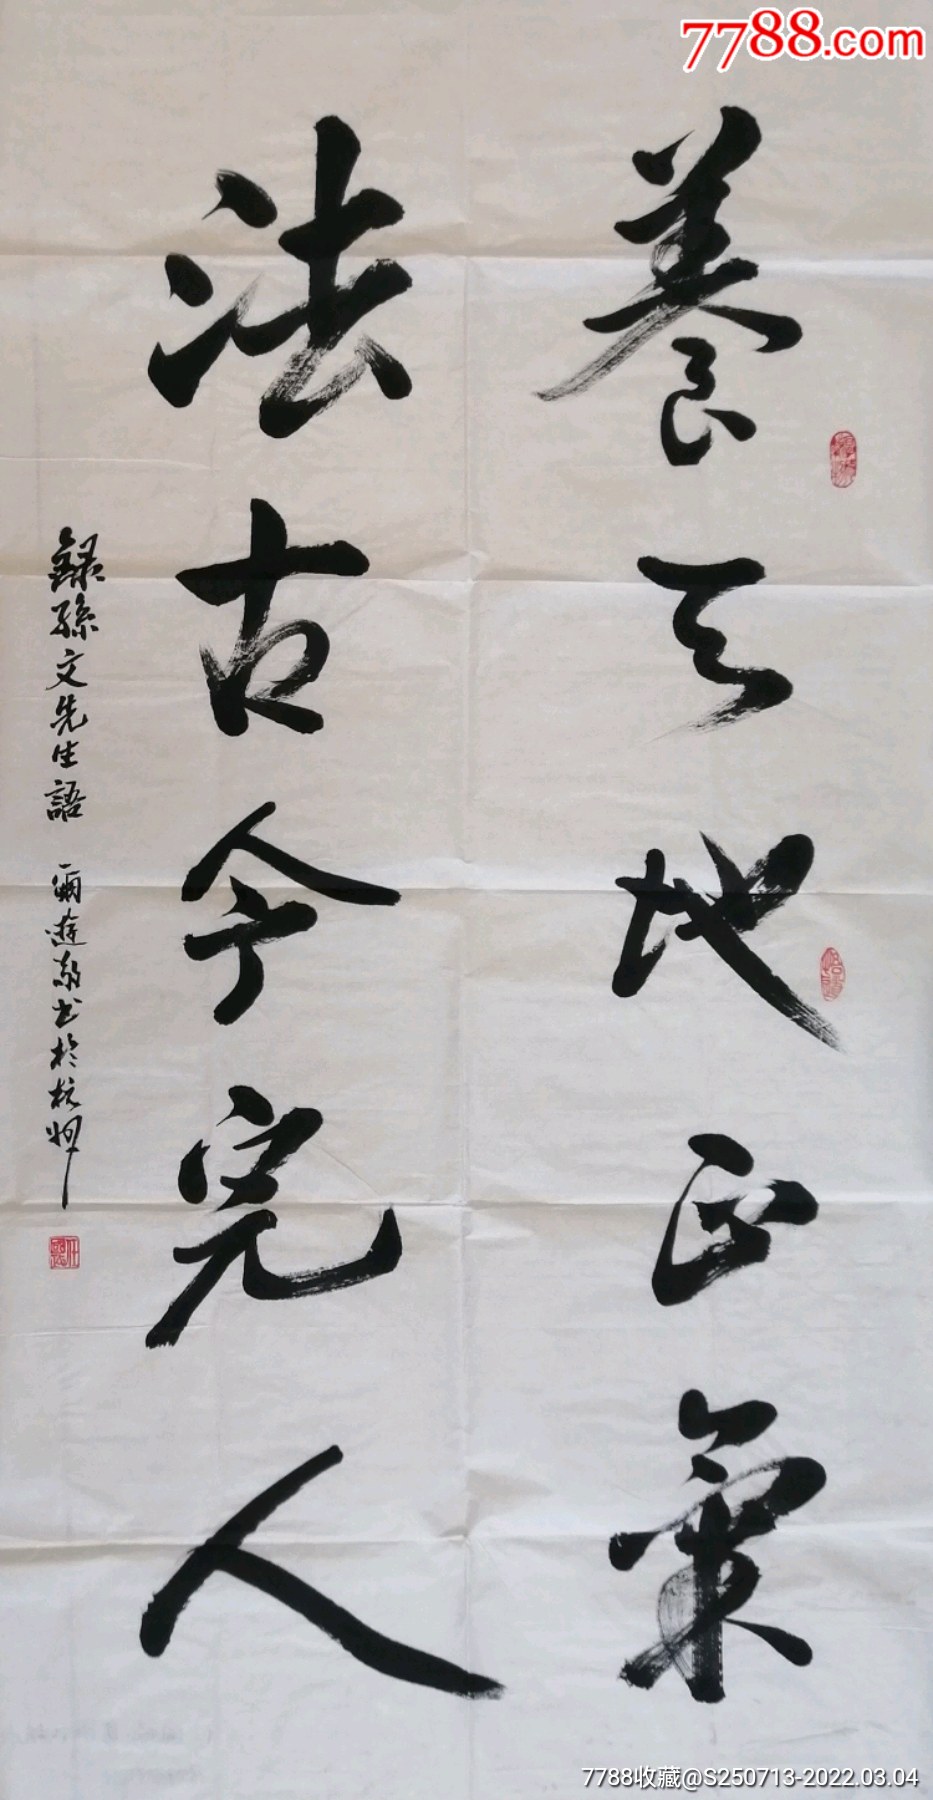 7788.com
養天地正氣
法古今完人
錄孫文先生語 爾遊敬書於杭州
7788收藏@S250713-2022.03.04